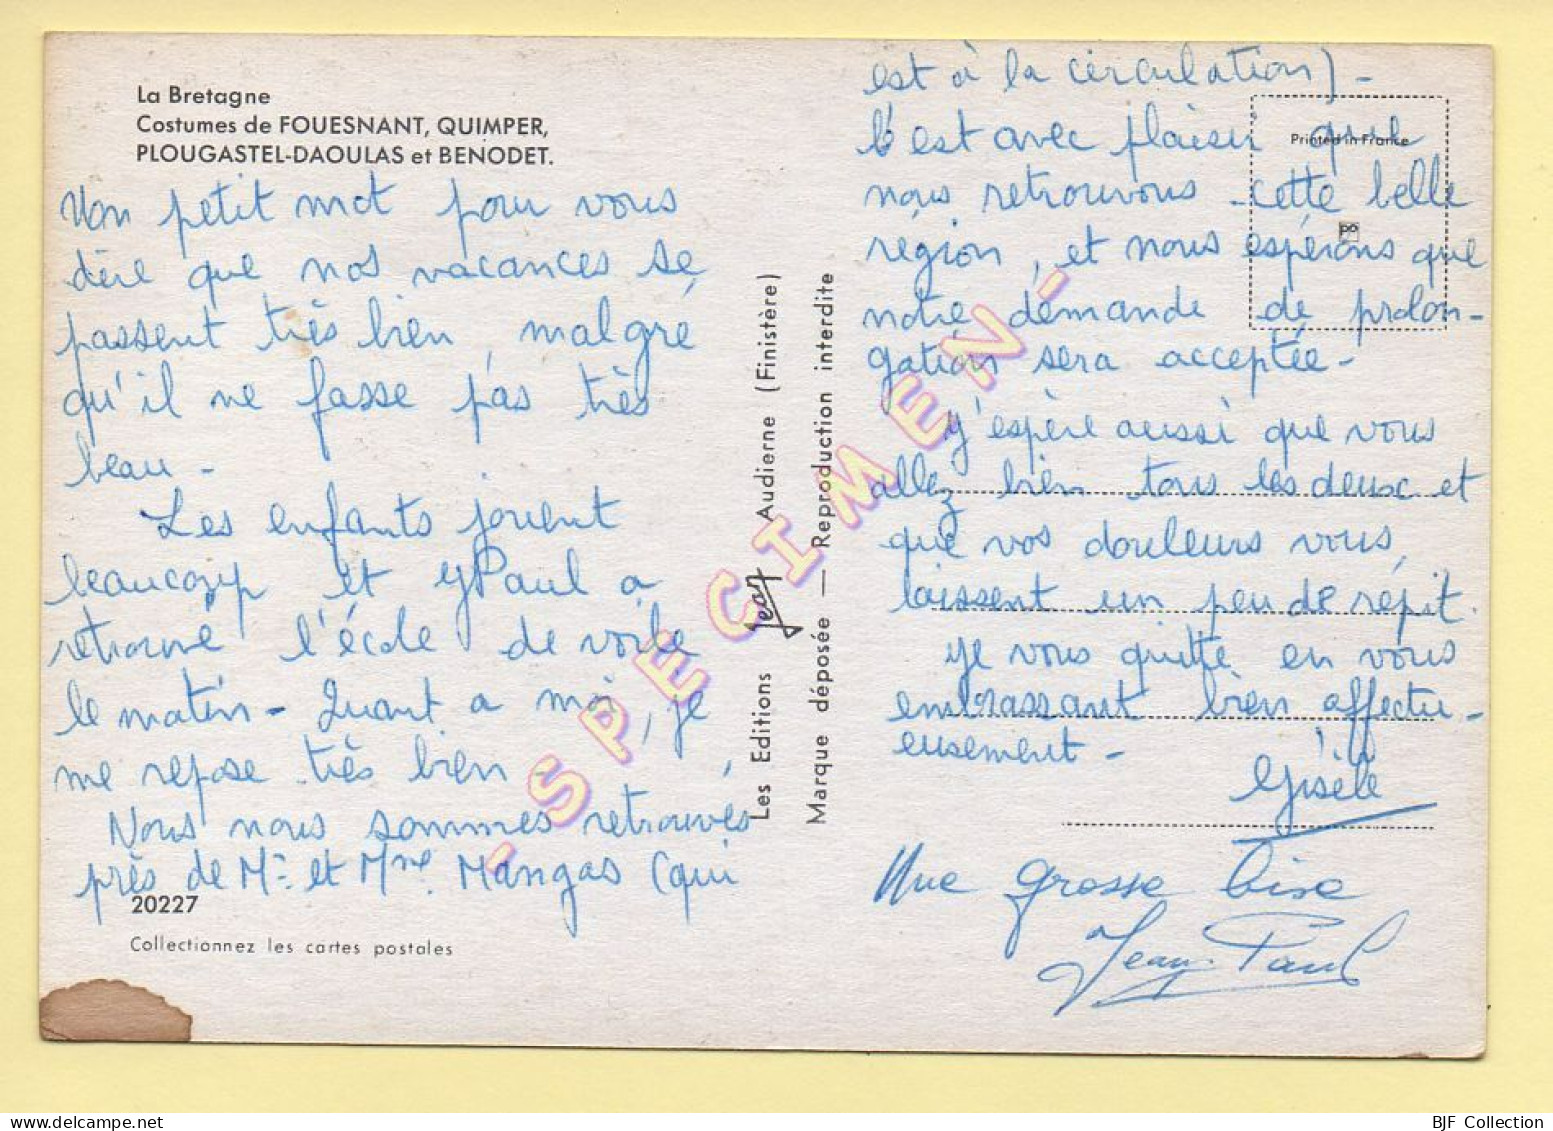 La Bretagne
Costumes de FOUESNANT, QUIMPER,
PLOUGASTEL-DAOULAS et BENODET.
Un petit mot pour vous
dire que nos vacances se
passent très bien, malgré
qu'il ne fasse pas très
beau -
Les enfants jouent
beaucoup et JPaul a
retrouvé l'école de voile
le matin - Quant a moi, je
me repose très bien -
Nous nous sommes retrouvés
près de Mr et Mme Mangas (qui
20227
Collectionnez les cartes postales
Les Editions Jean Audierne (Finistère)
Marque déposée — Reproduction interdite
- SPECIMEN -
est à la circulation) -
C'est avec plaisir que
Printed in France
nous retrouvons cette belle
région, et nous espérons que
notre demande de prolon-
gation sera acceptée -
J'espère aussi que vous
allez bien tous les deux et
que vos douleurs vous
laissent un peu de répit.
Je vous quitte en vous
embrassant bien affectu-
eusement -
Gisèle
Une grosse bise
Jean Paul
BJF Collection